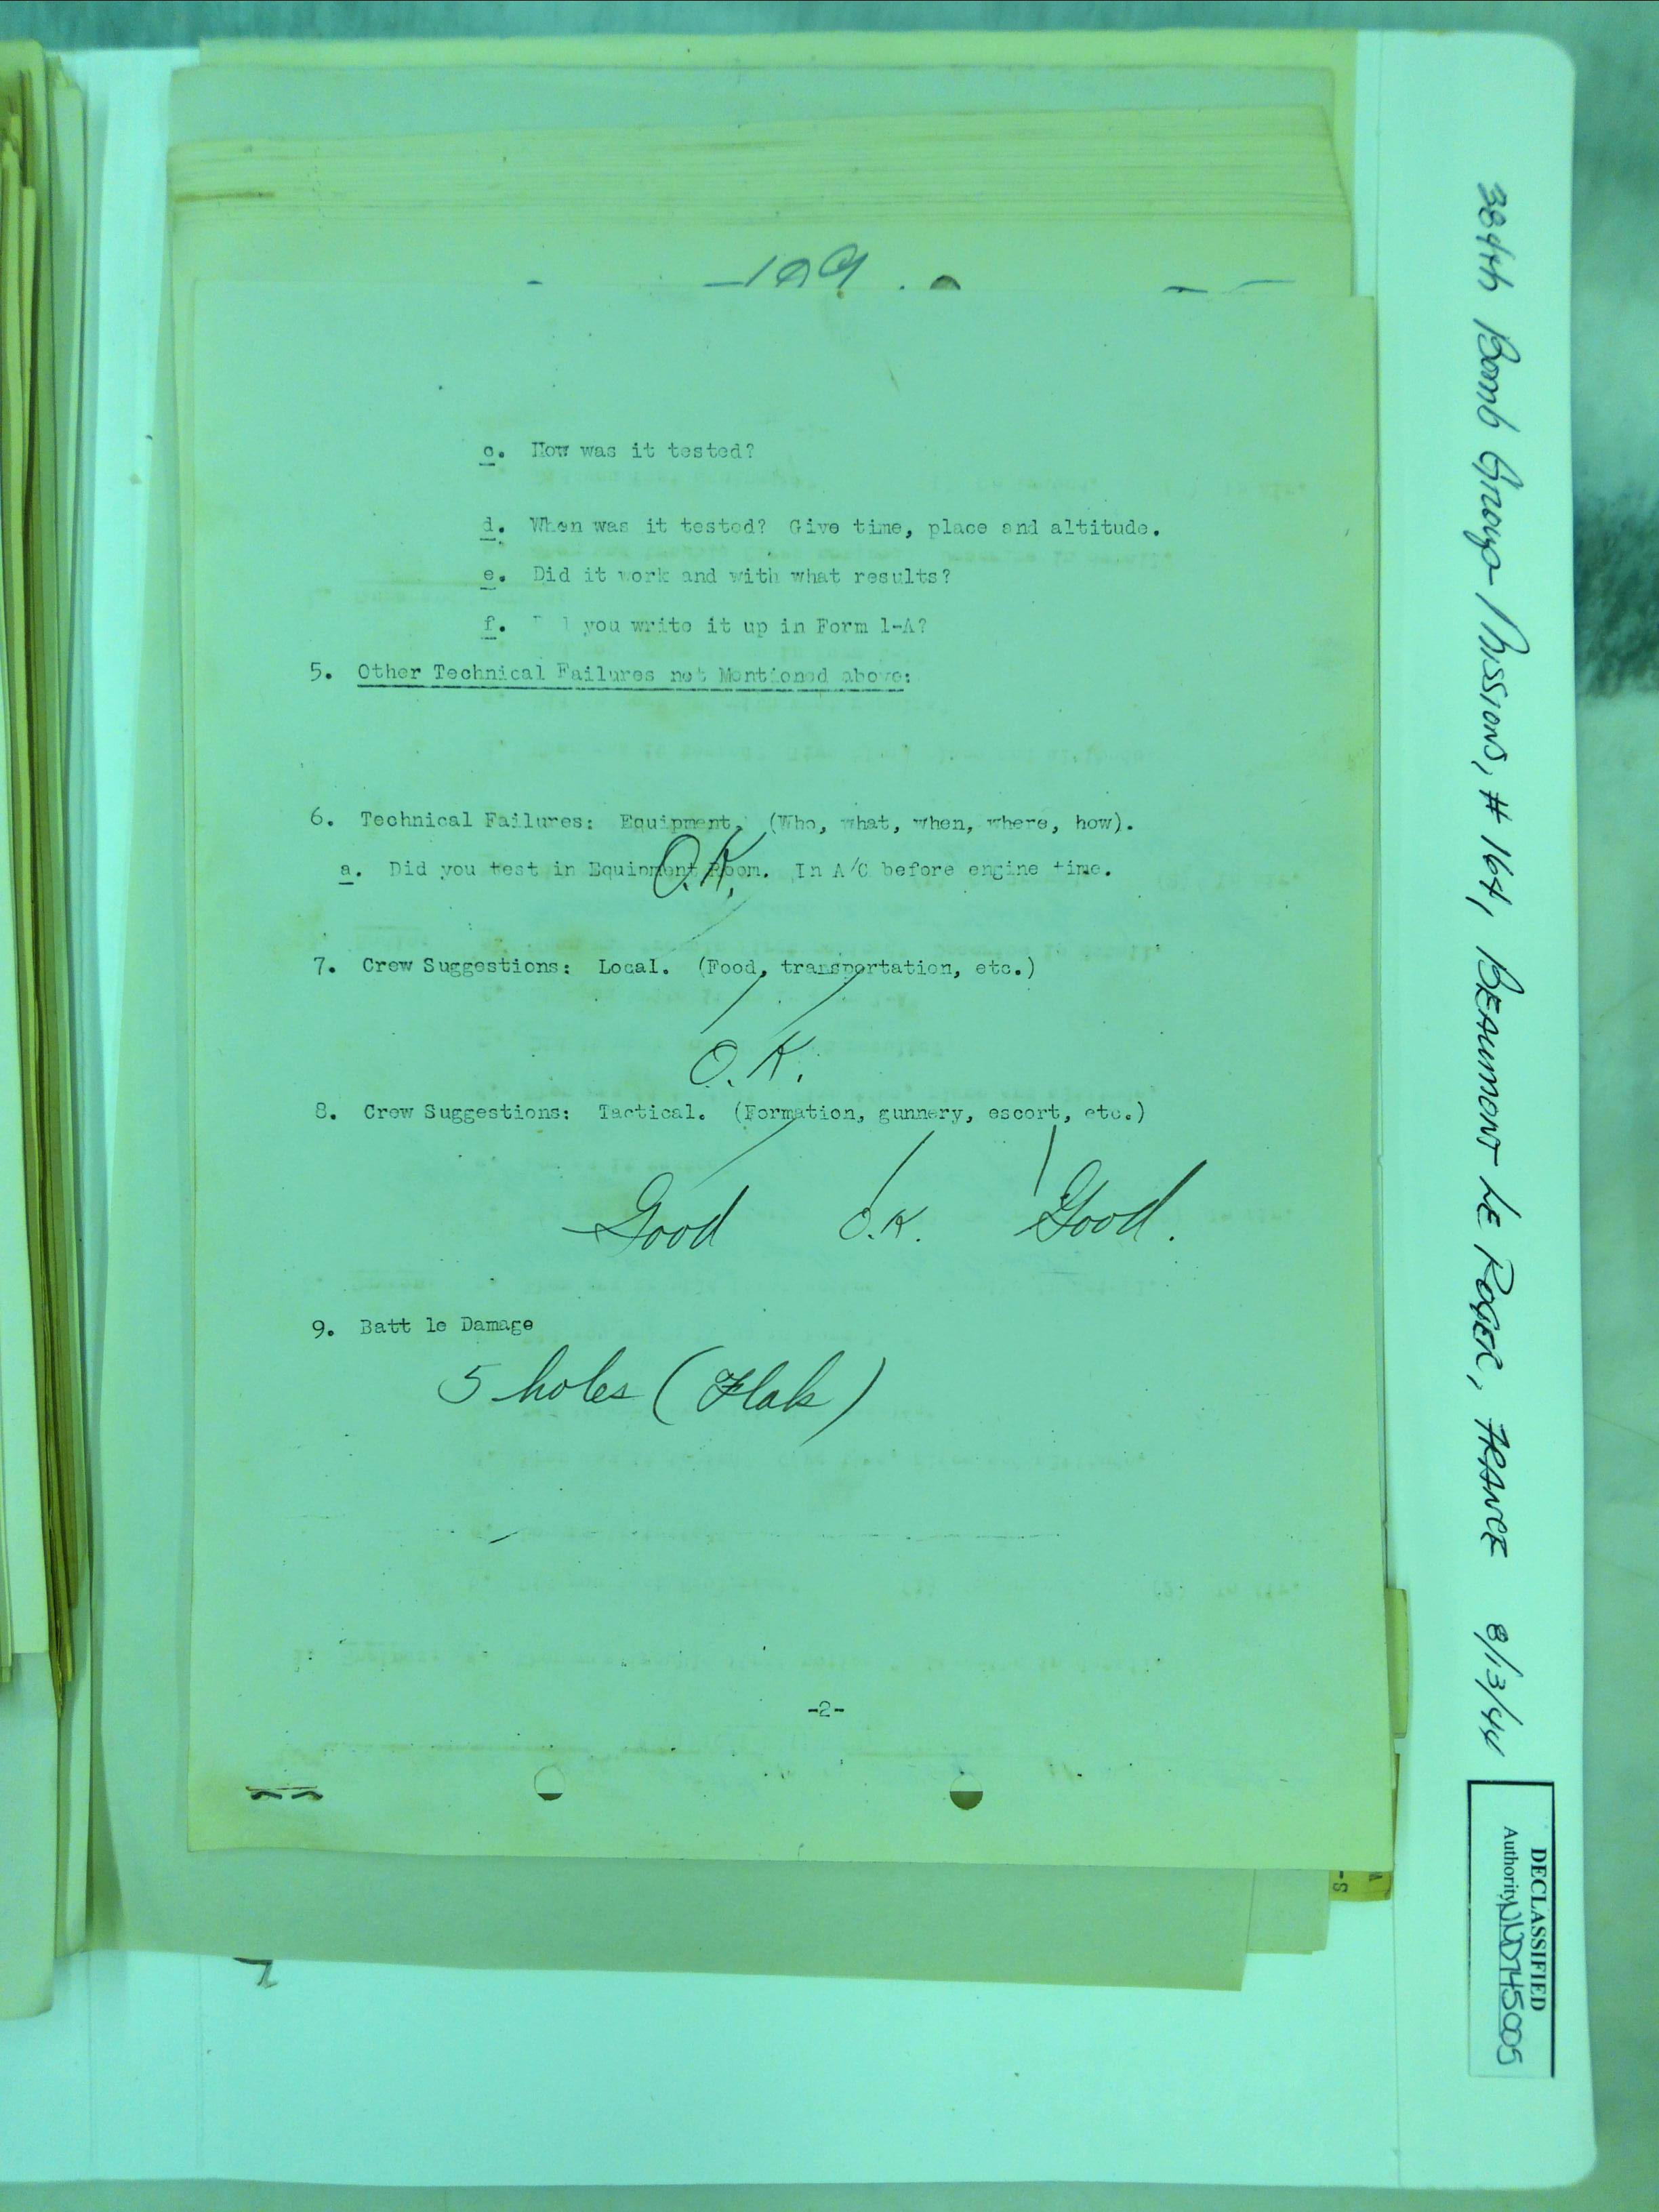 109
c. How was it tested?
d. When was it tested? Give time, place and altitude.
e. Did it work and with what results?
f. you write it up in Form 1-A?
5. Other Technical Failures not Mentioned above:
6. Technical Failures: Equipment. (Who, what, when, where, how).
O.K.
a. Did you test in Equipment Room. In A/C before engine time.
7. Crew Suggestions: Local. (Food, transportation, etc.)
O.K.
8. Crew Suggestions: Tactical. (Formation, gunnery, escort, etc.)
Good O.K. Good.
9. Batt le Damage
5 holes (Flak)
-2-
384th Bomb Group Missions, # 164, BEAUMONT LE ROGER, FRANCE 8/13/44
DECLASSIFIED
Authority NND745005